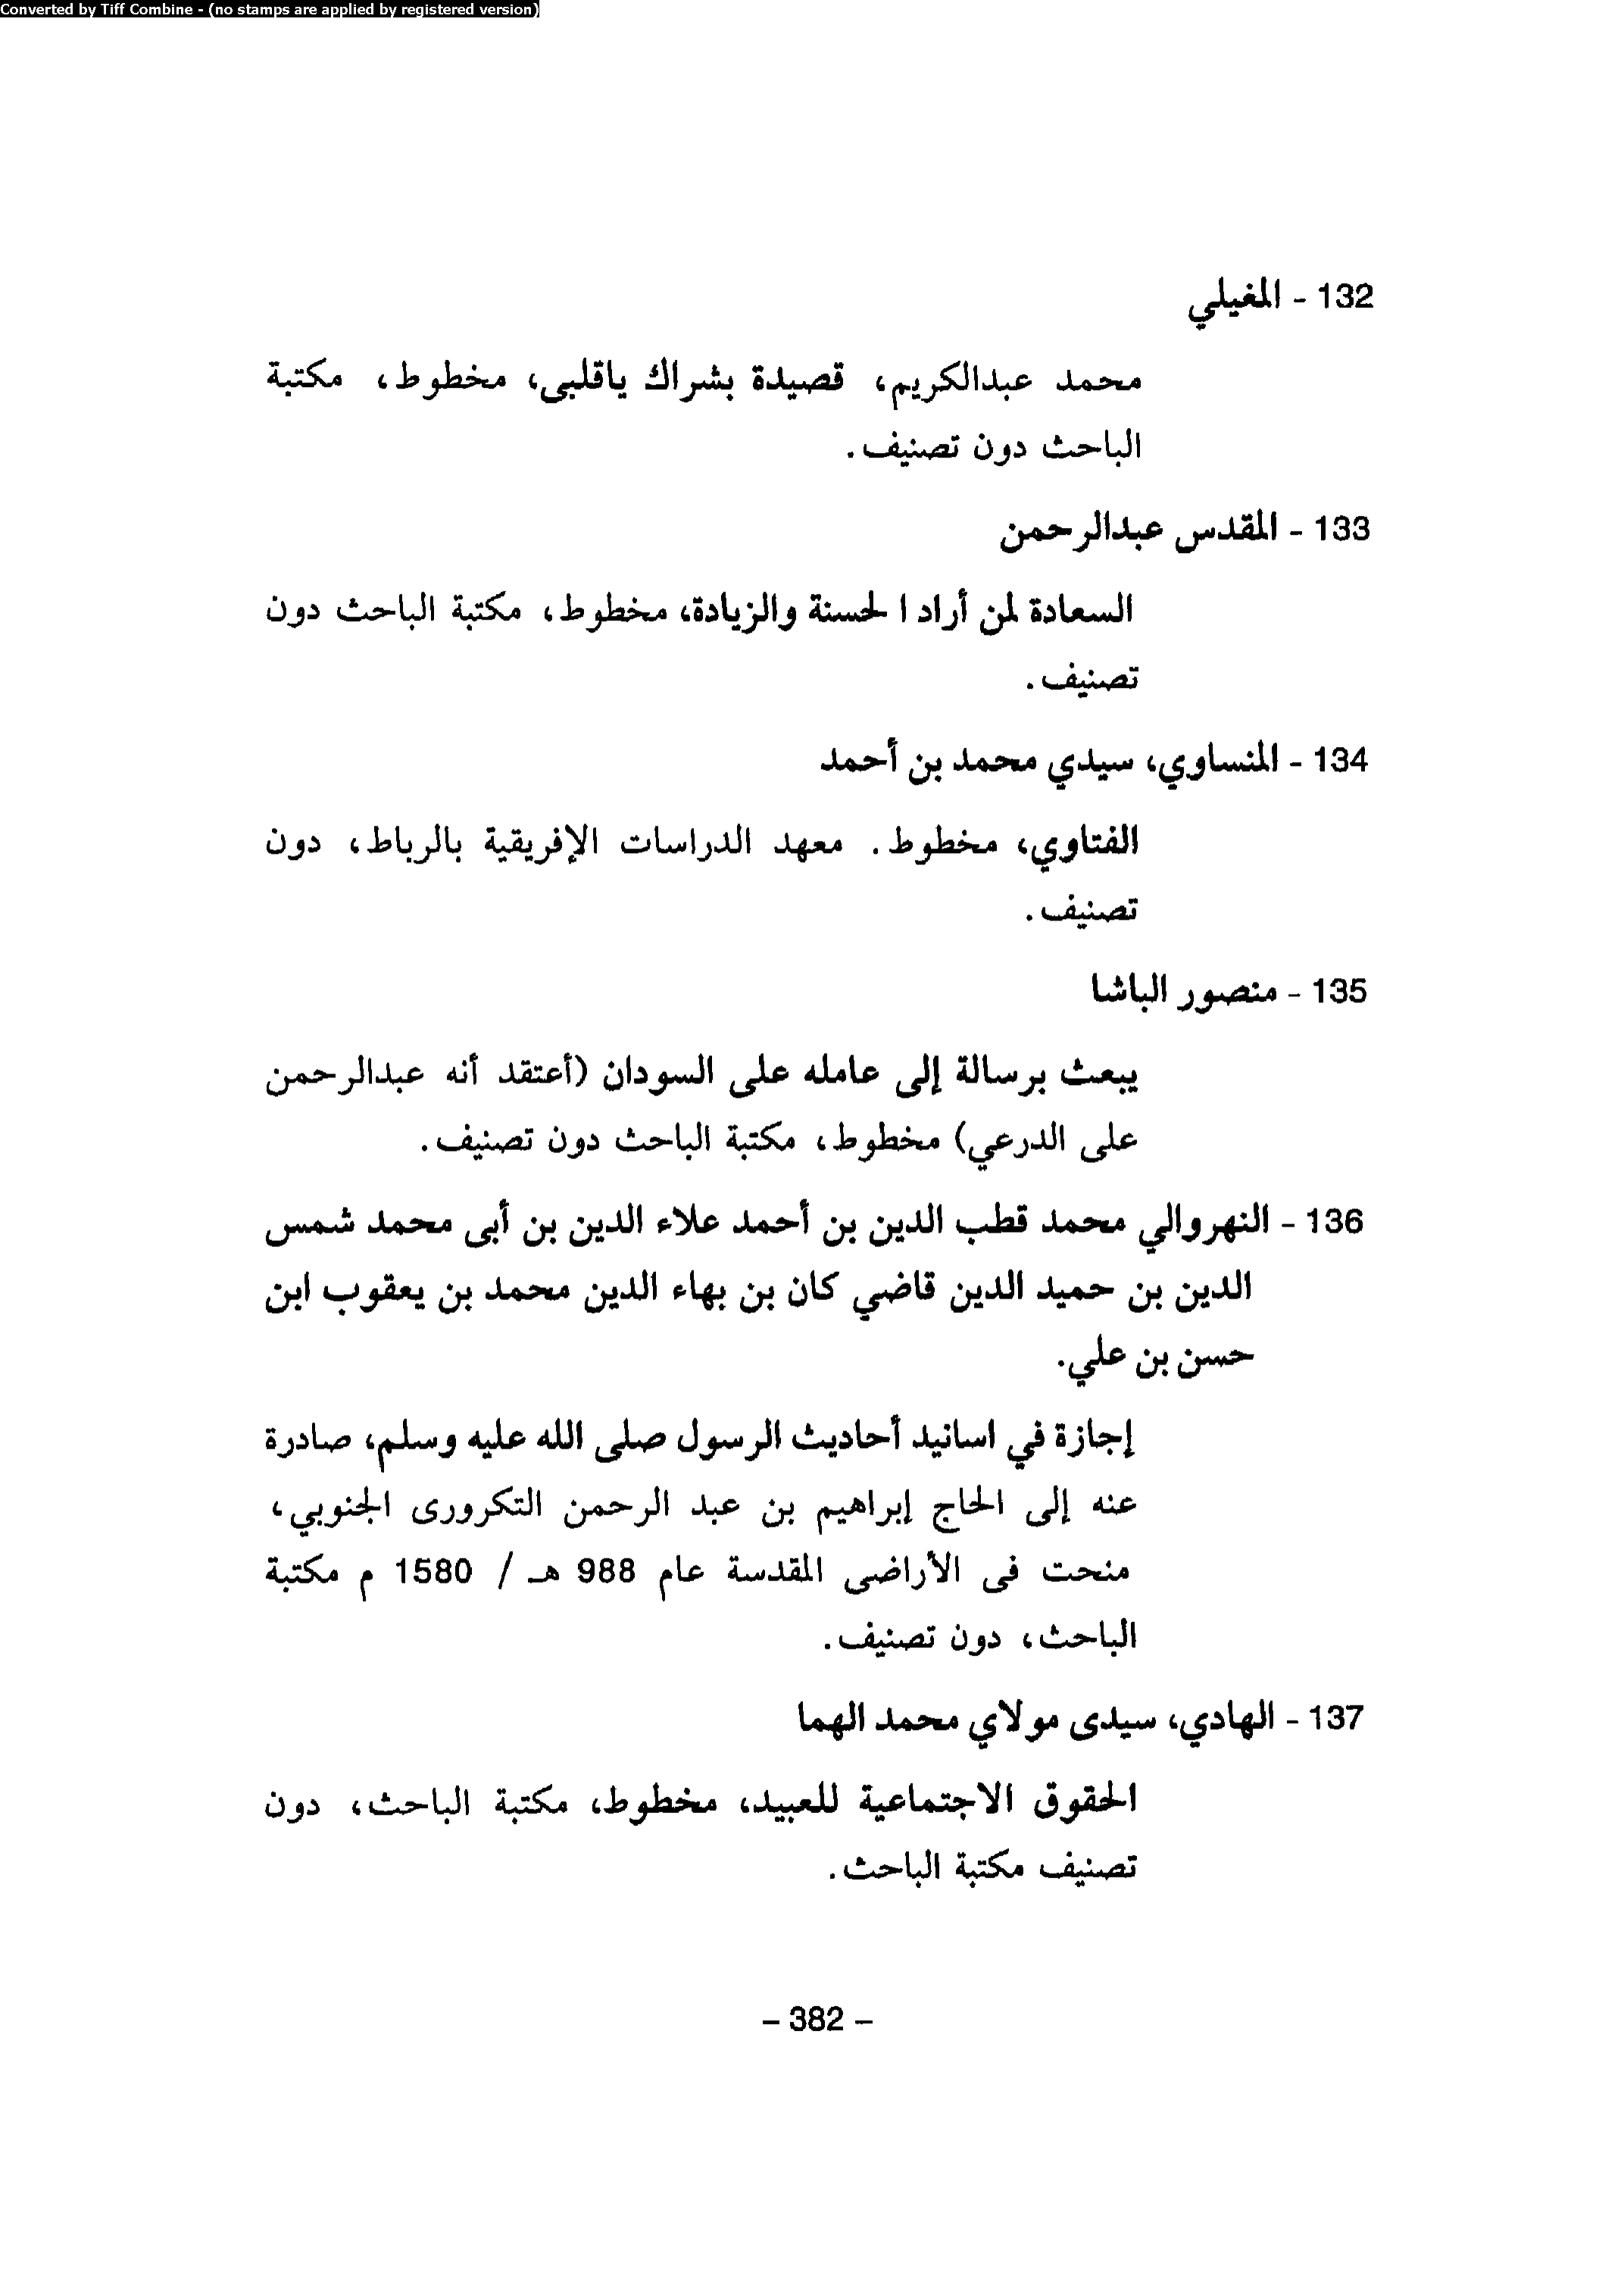 Converted by Tiff Combine - (no stamps are applied by registered version)
132 - المغيلي
محمد عبدالكريم، قصيدة بشراك ياقلبى، مخطوط، مكتبة
الباحث دون تصنيف.
133 - المقدس عبدالرحمن
السعادة لمن أراد ا لحسنة والزيادة، مخطوط، مكتبة الباحث دون
تصنيف.
134 - المنساوي، سيدي محمد بن أحمد
الفتاوي، مخطوط. معهد الدراسات الإفريقية بالرباط، دون
تصنيف.
135 - منصور الباشا
يبعث برسالة إلى عامله على السودان (أعتقد أنه عبدالرحمن
على الدرعي) مخطوط، مكتبة الباحث دون تصنيف.
136 - النهروالي محمد قطب الدين بن أحمد علاء الدين بن أبى محمد شمس
الدين بن حميد الدين قاضي كان بن بهاء الدين محمد بن يعقوب ابن
حسن بن علي.
إجازة في اسانيد أحاديث الرسول صلى الله عليه وسلم، صادرة
عنه إلى الحاج إبراهيم بن عبد الرحمن التكرورى الجنوبي،
منحت فى الأراضى المقدسة عام 988 هـ / 1580 م مكتبة
الباحث، دون تصنيف.
137 - الهادي، سيدى مولاي محمد الهما
الحقوق الاجتماعية للعبيد، مخطوط، مكتبة الباحث، دون
تصنيف مكتبة الباحث.
- 382 -